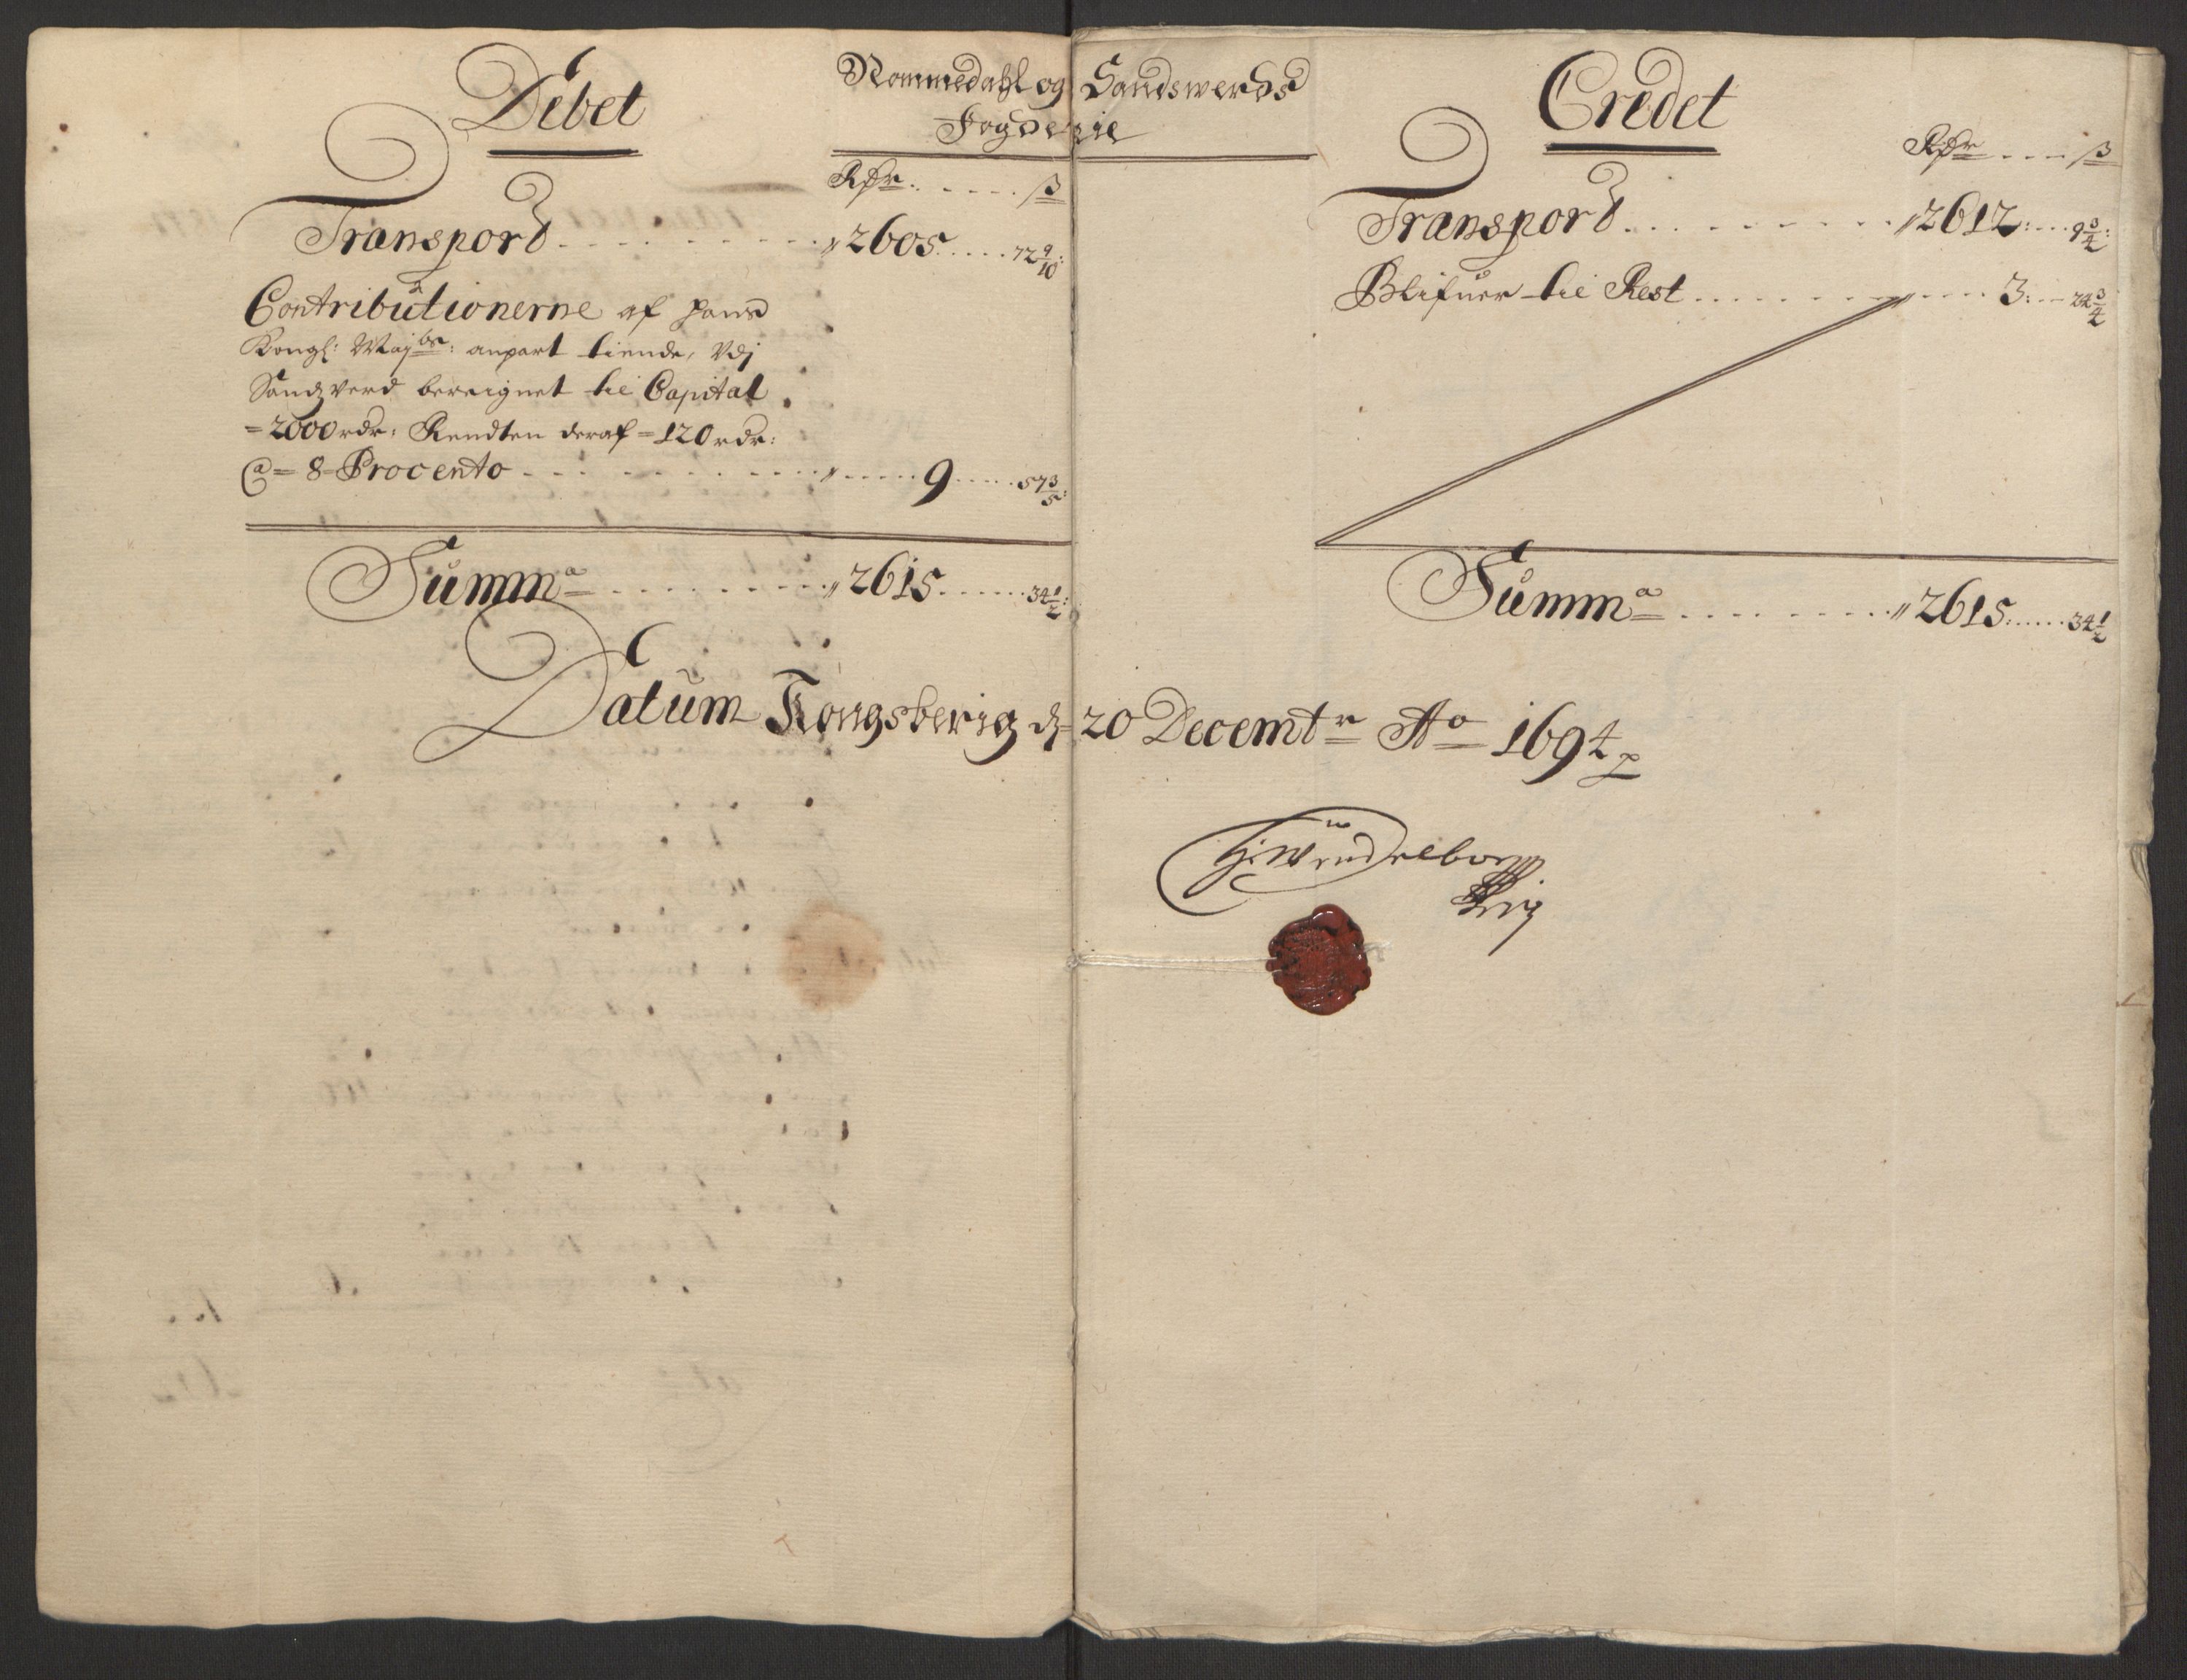 Debet
Nommedahl og Sandswerds
Fogderie
Rdr ß
Transport 2605 72 9/10
Contributionerne af hans
Kongl: Maj^ts: anpart tiende, Vdj
Sandsverd bereignet til Capital
=2000 rdr: Rendten deraf =120 rdr:
@ = 8 Procento 9 57 3/5
Summ^a 2615 34 1/2
Credet
Rdr ß
Transport 2612 9 3/4
Blifuer til Rest 3 24 3/4
Summ^a 2615 34 1/2
Datum Kongsberig d 20 Decemb^r A^o 1694